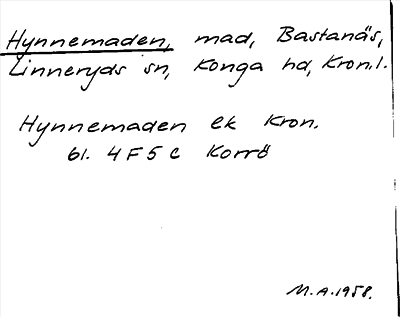 Hynnemaden, mad, Bastanäs,
Linneryds sn, Konga hd, Kron.l.
Hynnemaden ek Kron.
bl. 4 F 5 c Korrö
M.A.1958.